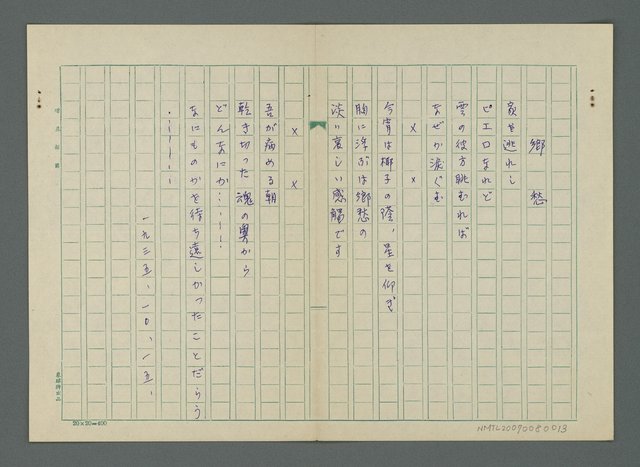 郷愁
家を逃れし
ピエロなれど
雲の彼方眺むれば
なぜか涙ぐむ
× ×
今宵は椰子の蔭、星を仰ぎ
胸に浮ぶは郷愁の
淡い哀しい感觸です
× ×
吾が病める朝
乾き切った魂の奥から
どんなにか・・・・・
なにものかを待ち遠しかったことだらう
・・・・・・
一九三五、一〇、一五、
20×20=400
NMTL20090080013